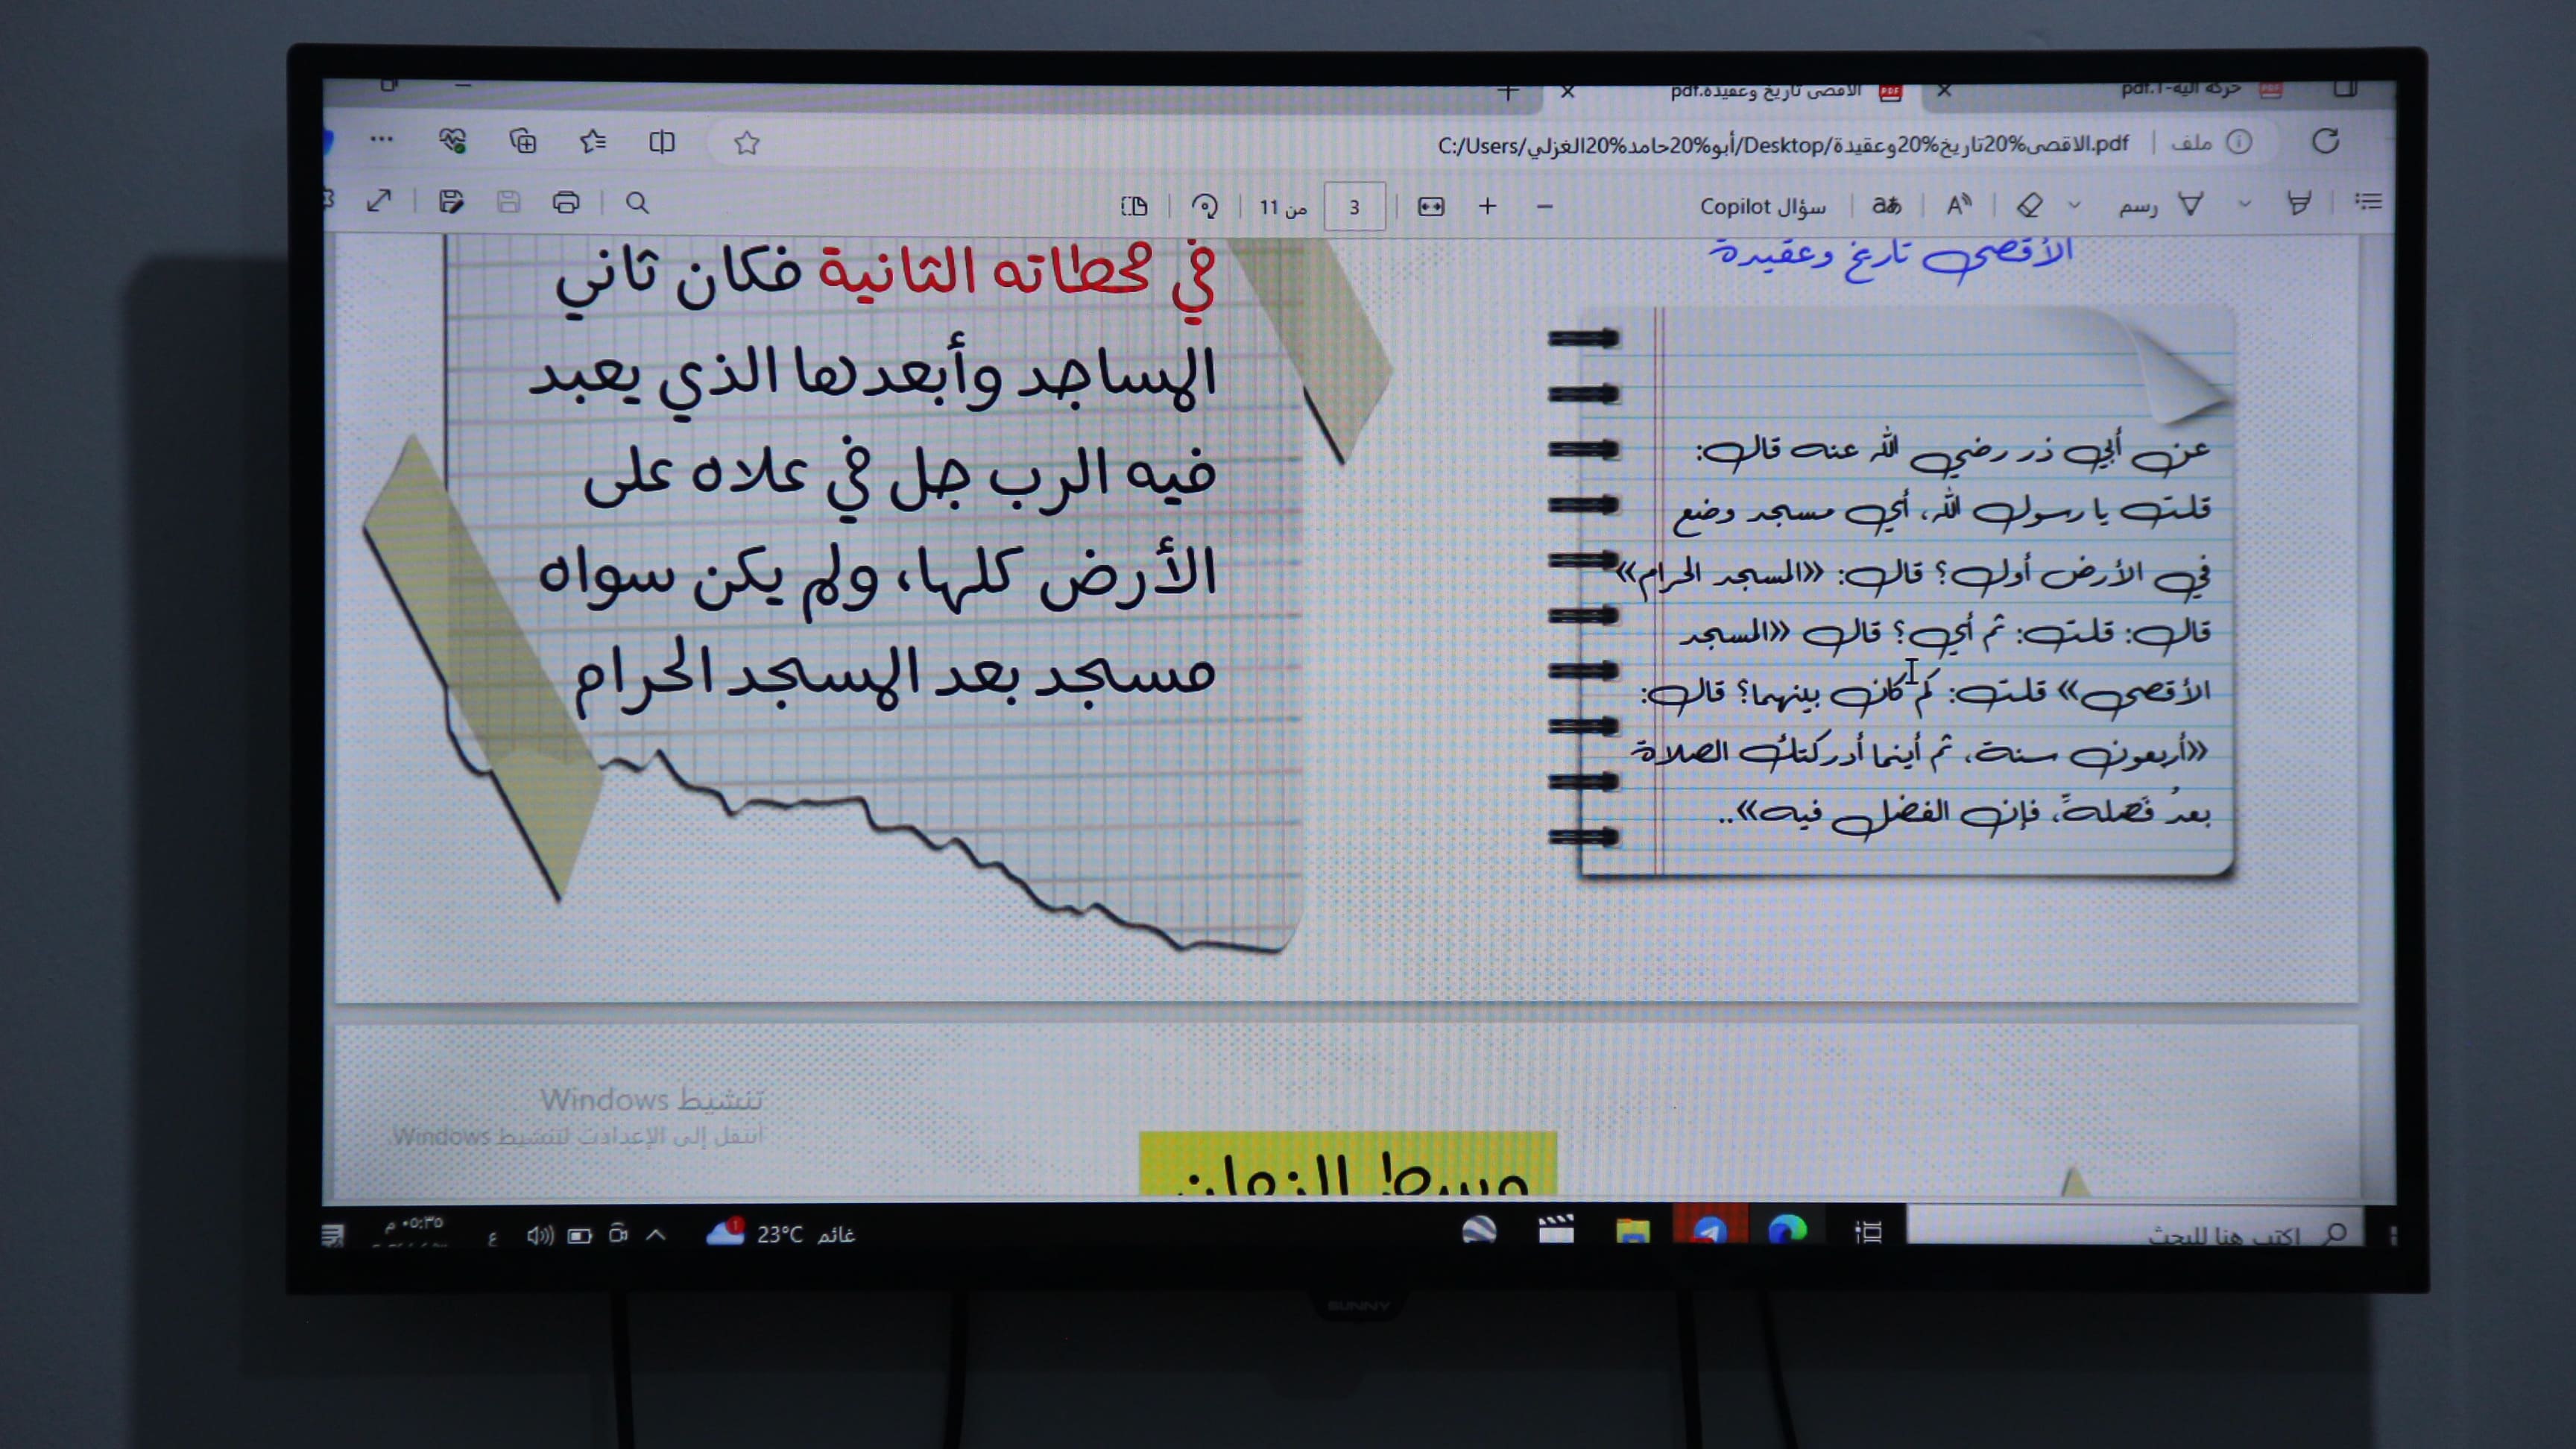 حركة آلية-1.pdf
الأقصى تاريخ وعقيدة.pdf
ملف
C:/Users/أبو%20حامد%20الغزلي/Desktop/الاقصى%20تاريخ%20وعقيدة.pdf
رسم
aあ
سؤال Copilot
3
من 11
الأقصى تاريخ وعقيدة
عن أبي ذر رضي الله عنه قال:
قلت يا رسول الله، أي مسجد وضع
في الأرض أول؟ قال: «المسجد الحرام»
قال: قلت: ثم أي؟ قال «المسجد
الأقصى» قلت: كم كان بينهما؟ قال:
«أربعون سنة، ثم أينما أدركتك الصلاة
بعدُ فَصَلهْ، فإن الفضل فيه»..
في محطاته الثانية فكان ثاني
المساجد وأبعدها الذي يعبد
فيه الرب جل في علاه على
الأرض كلها، ولم يكن سواه
مسجد بعد المسجد الحرام
وسط الزمان
تنشيط Windows
انتقل إلى الإعدادات لتنشيط Windows.
اكتب هنا للبحث
غائم 23°C
1
ع
٠٥:٣٥ م
SUNNY